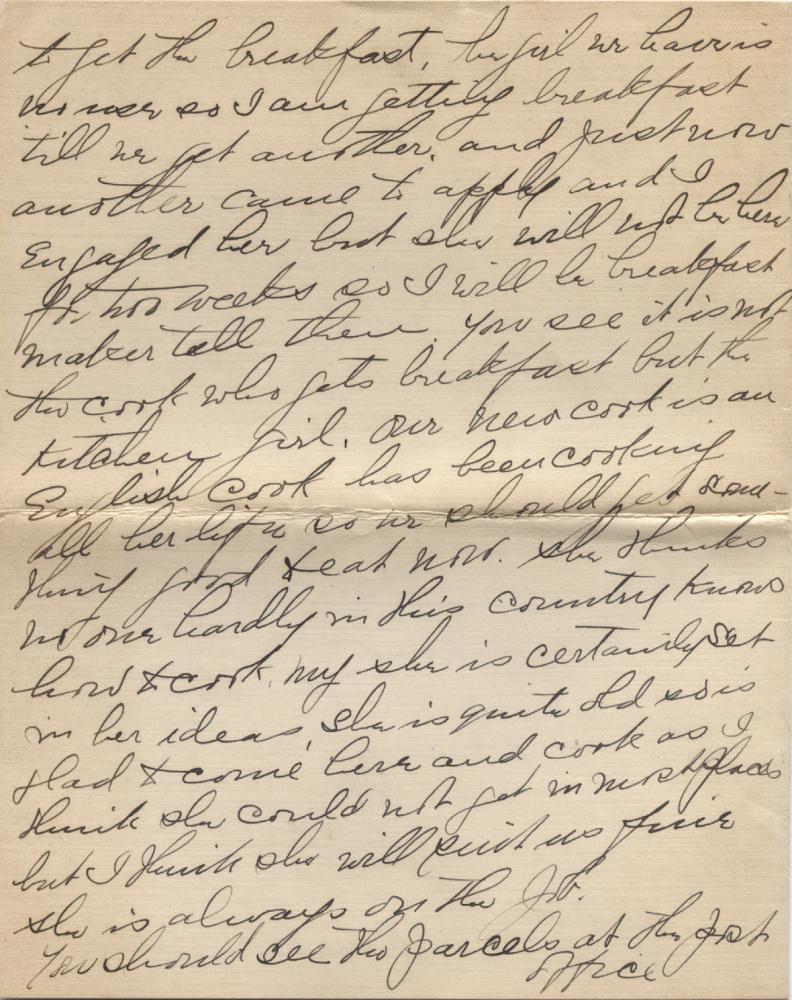 to get the breakfast, the girl we have is
no use so I am getting breakfast
till we get another. and just now
another came to apply and I
Engaged her but she will not be here
for two weeks so I will be breakfast
maker tell them. You see it is not
the cook who gets breakfast but the
Kitchen girl. Our new cook is an
English cook has been cooking
all her life so we should get some-
thing good to eat now. she thinks
no one hardly in this country knows
how to cook. my she is certainly set
in her ideas, she is quite old so is
glad to come here and cook as I
think she could not get in most places
but I think she will suit us fine
she is always on the job.
You should see the parcels at the Post
Office